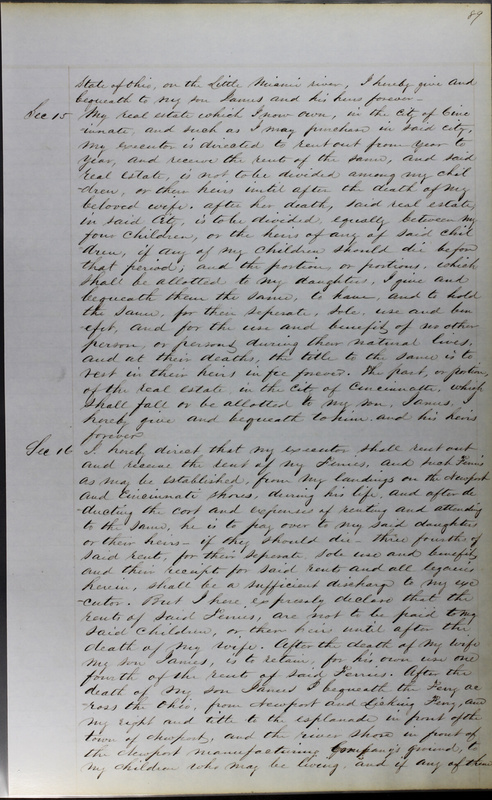 89
State of Ohio, on the Little Miami river, I hereby give and
bequeath to my son James and his heirs forever -
Sec 15 My real estate which I now own, in the City of Cinc
innate, and such as I may purchase in said City,
my executor is directed to rent out from year to
year, and receive the rents of the same, and said
real estate, is not to be divided among my chil
dren, or their heirs until after the death of my
beloved wife. after her death, said real estate
in said City, is to be divided equally between my
four children, or the heirs of any of said chil
dren, if any of my children should die before
that period, and the portion, or portions, which
shall be allotted to my daughters, I give and
bequeath them the same, to have, and to hold
the same, for their seperate, sole, use and ben
efit, and for the use and benefit of no other
person, or persons during their natural lives,
and at their deaths, the title to the same is to
vest in their heirs in fee forever. The part, or portion,
of the real estate in the City of Cincinnati, which
shall fall or be allotted to my son, James, I
hereby give and bequeath to him and his heirs
forever
Sec 16 I hereby direct that my executor shall rent out
and receive the rent of my Ferries, and such Ferries
as may be established, from my landings on the Newport
and Cincinnati shores, during his life, and after de
ducting the cost and expenses of renting and attending
to the same, he is to pay over to my said daughters
or their heirs - if they should die - three fourths of
said rent, for their seperate sole use and benefit,
and their receipt for said rents and all legacies
herein, shall be a sufficient discharge to my exe
-cutor. But I here expressly declare that the
rents of said Ferries, are not to be paid to my
said children, or their heirs until after the
death of my wife. After the death of my wife
my son James, is to retain, for his own use one
fourth of the rent of said Ferries. After the
death of my son James I bequeath the Ferry ac
-ross the Ohio, from Newport and Licking Ferry, and
my right and title to the esplanade in front of the
town of Newport, and the river shore in front of
the Newport manufacturing Company's ground, to
my children who may be living, and if any of them